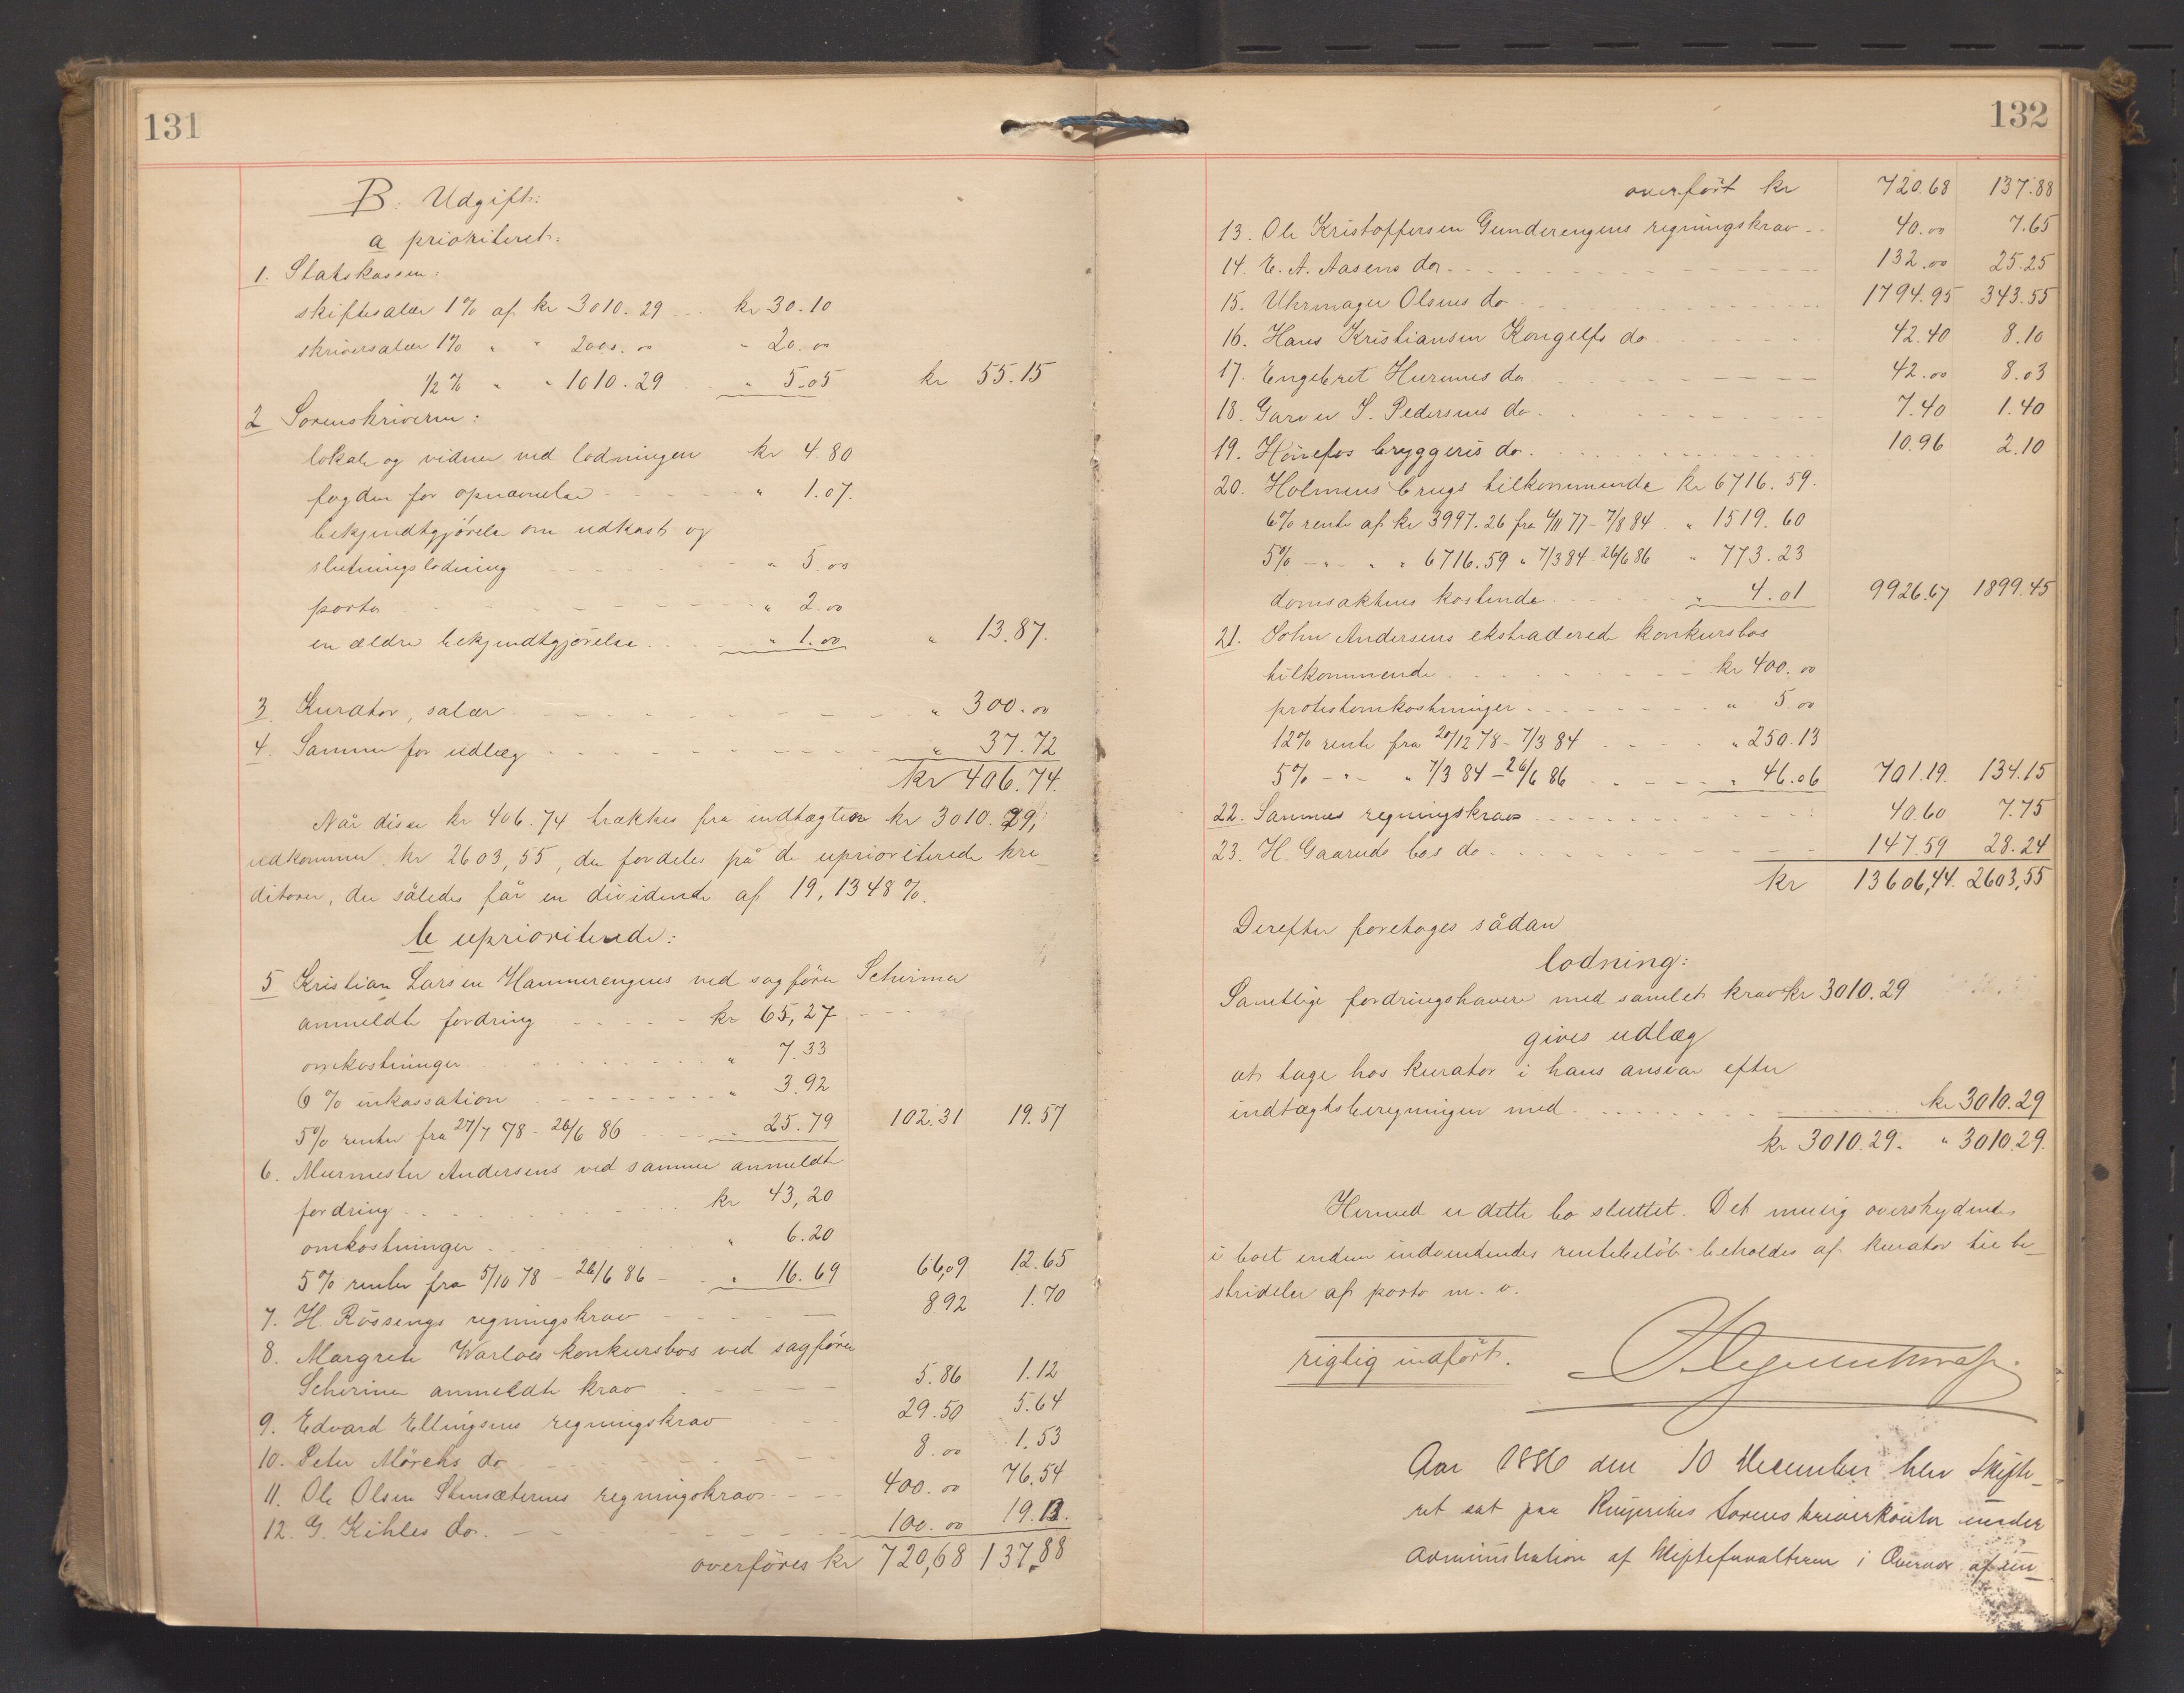 131
B. Udgift:
a prioriteret:
1. Statskassen:
skiftesalær 1% af kr 3010.29 kr 30.10
skriversalær 1% " " 2000.00 " 20.00
1/2 % " " 1010.29 " 5.05 kr 55.15
2 Sorenskriveren:
lokale og vidner ved lodningen kr 4.80
fogden for opnævnelse " 1.07.
bekjendtgjørelse om udkast og
slutningslodning " 5.00
porto " 2.00
en ældre bekjendtgjørelse " 1.00 " 13.87.
3. Kurator, salær " 300.00
4. Samme for udlæg " 37.72
kr 406.74.
Når disse kr 406.74 trækkes fra indtægten kr 3010.29,
udkommer kr 2603,55, der fordeles på de uprioriterede kre-
ditorer, der således får en dividende af 19,1348%.
b uprioriterede:
5 Kristian Larsen Hammerengens ved sagfører Schirmer
anmeldte fordring kr 65,27
omkostninger " 7.33
6 % inkassation " 3.92
5% renter fra 27/7 78 - 26/6 86 " 25.79 102.31 19.57
6. Murmester Andersens ved samme anmeldte
fordring kr 43,20
omkostninger " 6.20
5% renter fra 5/10 78 - 26/6 86 - " 16.69 66,09 12.65
7. H. Rössengs regningskrav 8.92 1.70
8. Margrete Warloes konkursbos ved sagfører
Schirmer anmeldte krav 5.86 1.12
9. Edvard Ellingsens regningskrav 29.50 5.64
10. Peter Mörchs do 8.00 1.53
11. Ole Olsen Stensæternes regningskrav 400.00 76.54
12. G. Kihles do. 100.00 19.13.
overføres kr 720,68 137.88
132
overført kr 720.68 137.88
13. Ole Kristoffersen Gunderengens regningskrav 40.00 7.65
14. E. A. Aasens do. 132.00 25.25
15. Uhrmager Olsens do 1794.95 343.55
16. Hans Kristiansen Kongelfs do 42.40 8.10
17. Engebret Hurumes do 42.00 8.03
18. Garver S. Pedersens do. 7.40 1.40
19. Hönefos bryggeris do. 10.96 2.10
20. Holmens brugs tilkommende kr 6716.59.
6% rente af kr 3997.26 fra 4/11 77 - 7/3 84 " 1519.60
5% - " - " " 6716.59 " 7/3 84 - 26/6 86 " 773.23
domsaktens kostende " 4.01 9926.67 1899.45
21. John Andersens ekstraderede konkursbos
tilkommende kr 400.00
protestomkostninger " 5.00
12% rente fra 20/12 78 - 7/3 84 " 250.13
5% - " - " 7/3 84 - 26/6 86 " 46.06 701.19. 134.15
22. Sammes regningskrav 40.60 7.75
23. H. Gaaruds bos do. 147.59 28.24
kr 13606,44. 2603,55
Derefter foretoges sådan
lodning:
Samtlige fordringshavere med samlet krav kr 3010.29
gives udlæg
at tage hos kurator i hans ansvar efter
indtægtsberegningen med kr 3010.29
kr 3010.29. " 3010.29.
Hermed er dette bo sluttet. Det mulig overskydende
i boet endnu indvendendes rentebeløb beholdes af kurator til be-
stridelse af porto m. v.
rigtig indført.
Aar 1886 den 10 December blev Skifte-
ret sat paa Ringerikes Sorenskriverkontor under
Administration af Skifteforvalteren i Overvær af un-